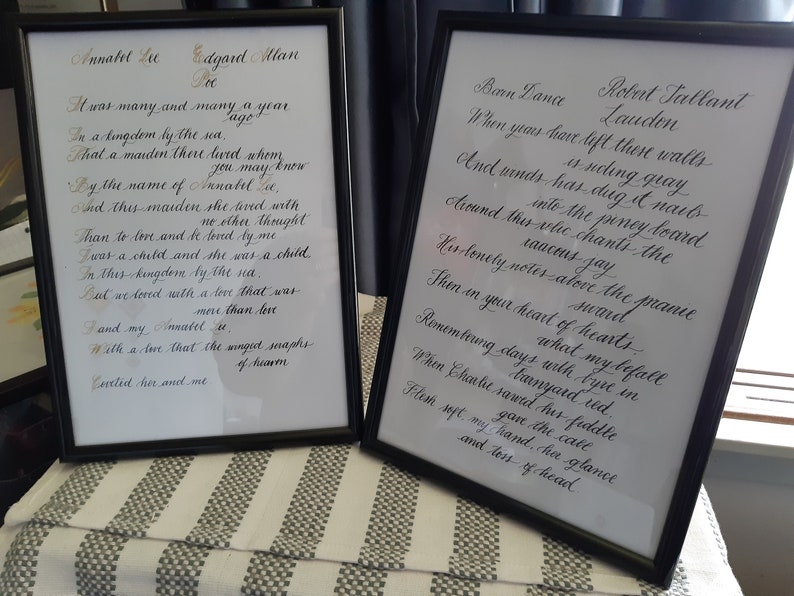 Annabel Lee Edgard Allan
Poe
It was many and many a year
ago
In a kingdom by the sea,
That a maiden there lived whom
you may know
By the name of Annabel Lee,
And this maiden she lived with
no other thought
Than to love and be loved by me
I was a child and she was a child,
In this kingdom by the sea,
But we loved with a love that was
more than love
I and my Annabel Lee,
With a love that the winged seraphs
of heaven
Coveted her and me.
Barn Dance Robert Tallant
Laudon
When years have left these walls
is siding gray
And winds has dug it nails
into the piney board
Around this relic chants the
raucous jay
His lonely notes above the prairie
sward
Then in your heart of hearts,
what my befall
Remembering days with byre in
barnyard red,
When Charlie sawed his fiddle
gave the call
Flesh soft my hand, her glance
and toss of head.